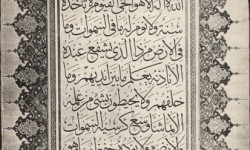 الله لا إله إلا هو الحي القيوم لا تأخذه
سنة ولا نوم له ما في السموات وما
في الأرض من ذا الذي يشفع عنده
إلا بإذنه يعلم ما بين أيديهم وما
خلفهم ولا يحيطون بشيء من علمه
إلا بما شاء وسع كرسيه السموات